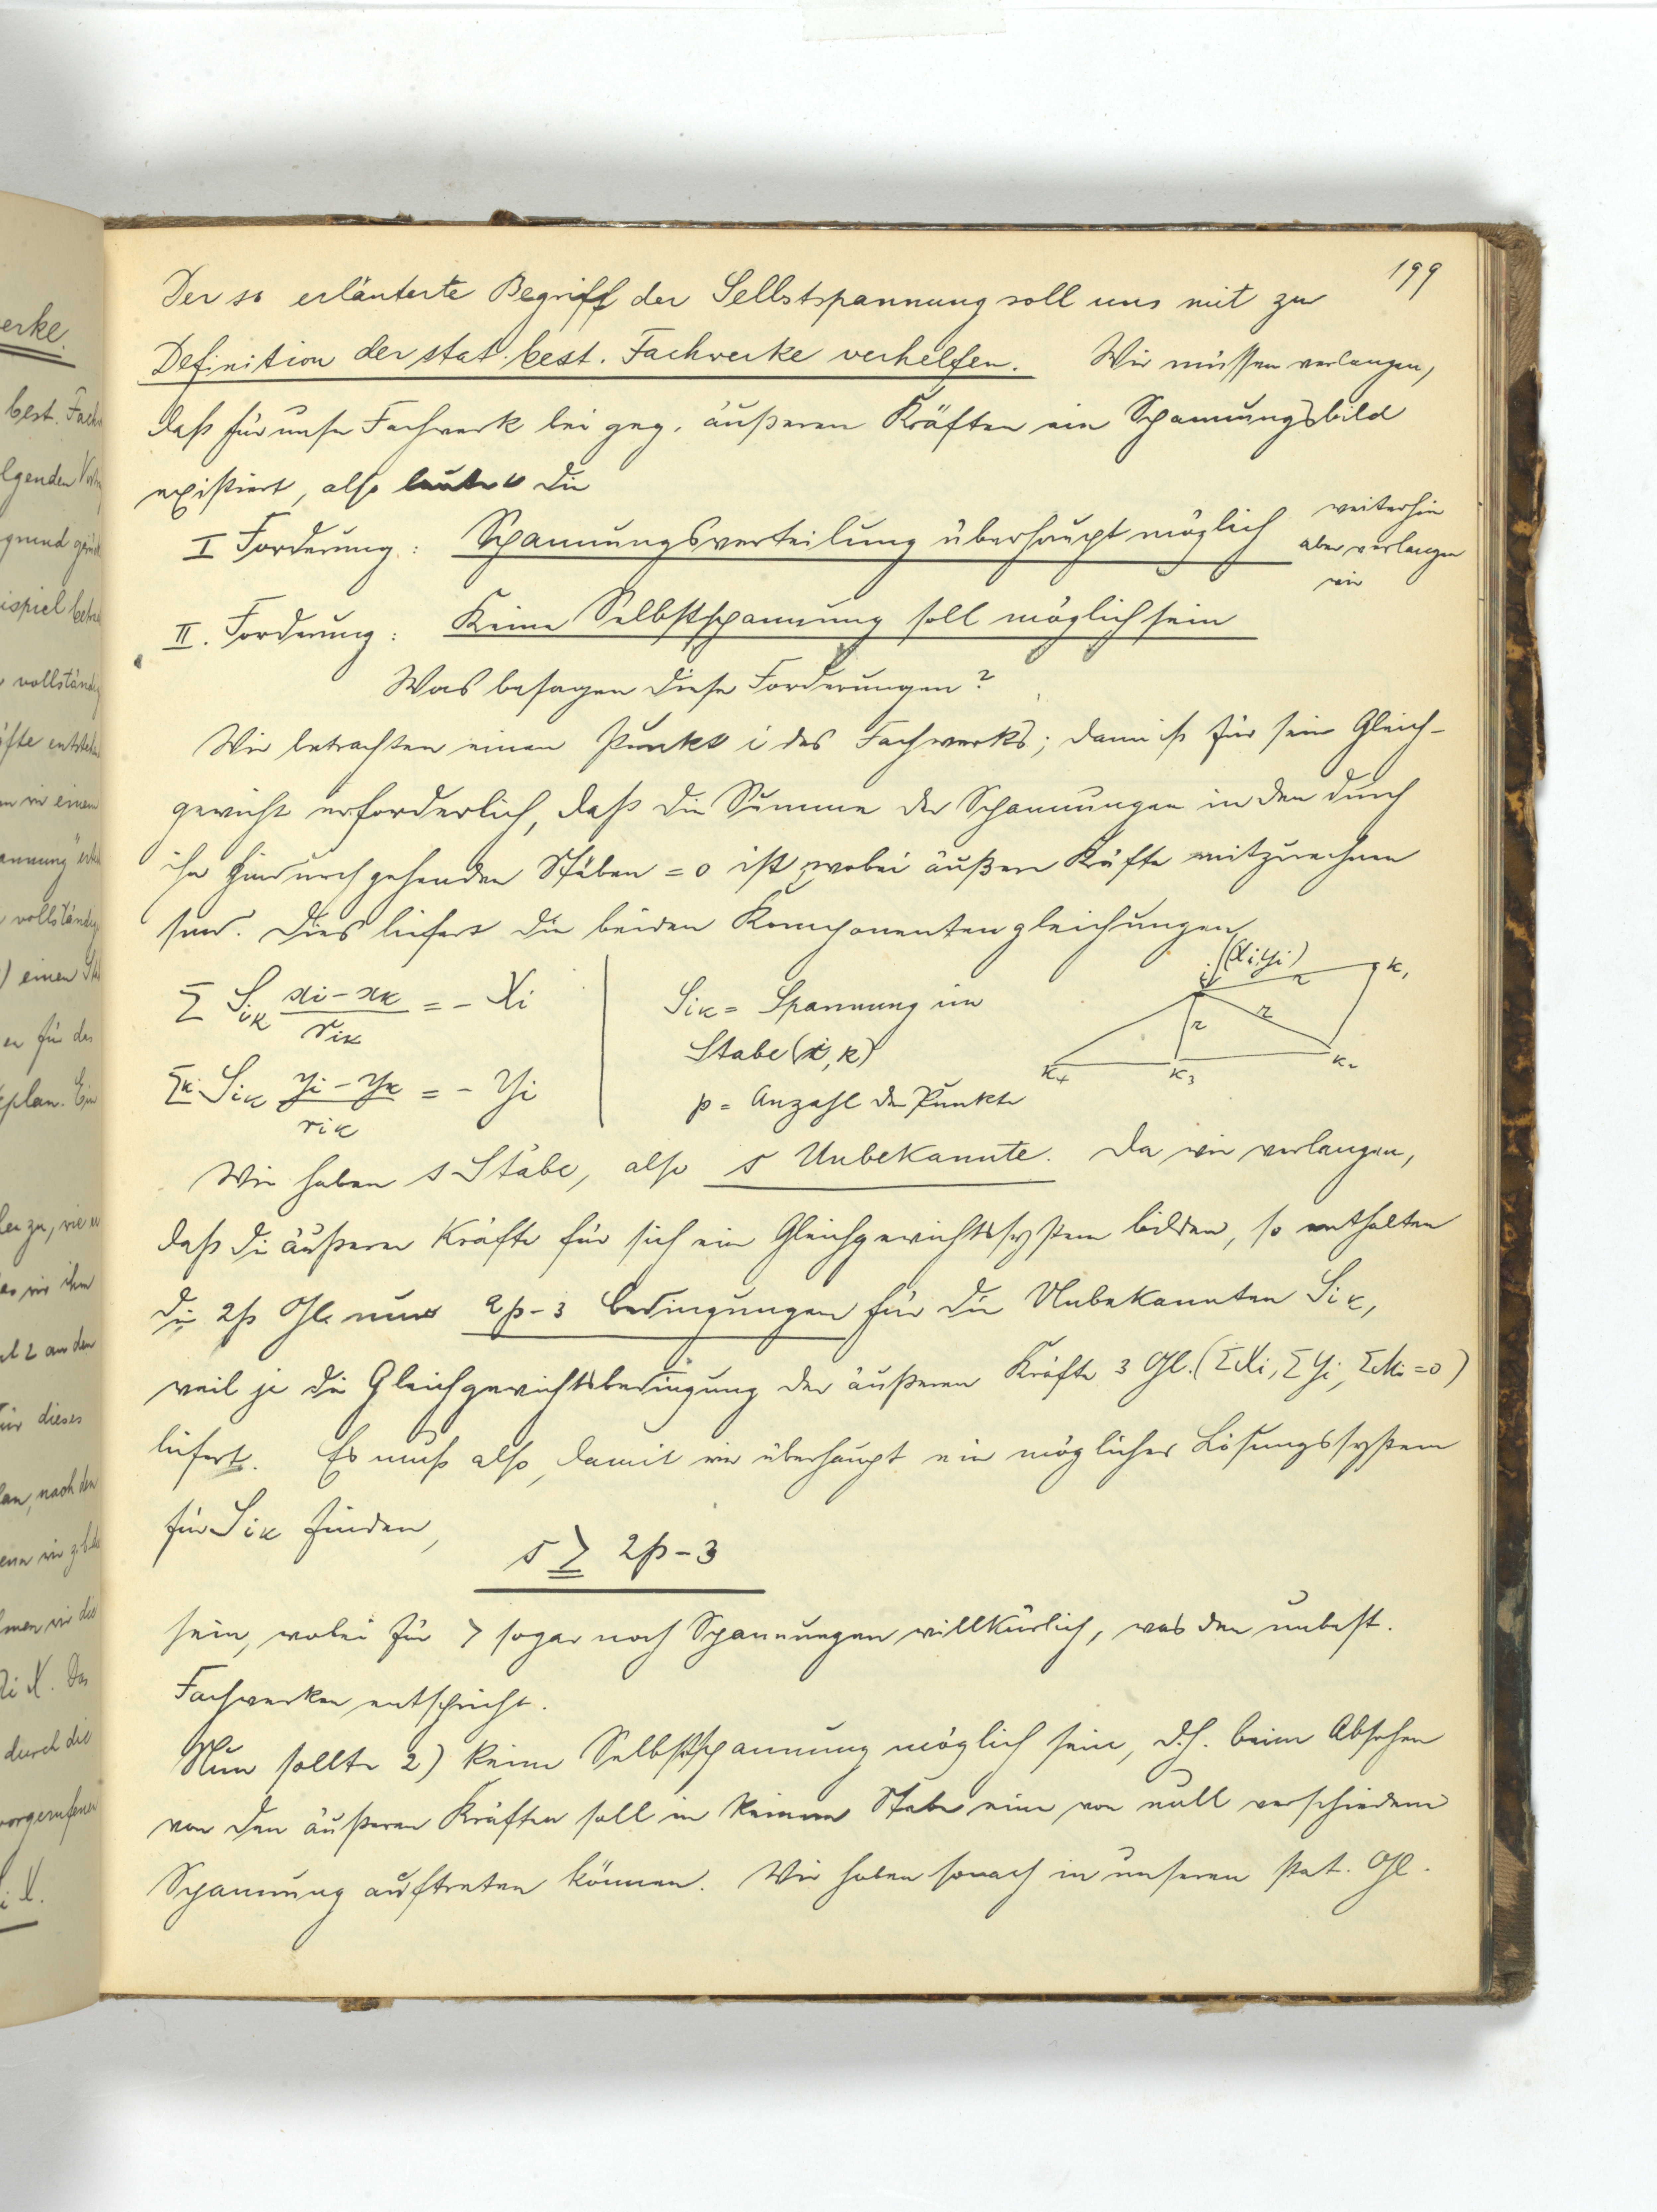 199
Der so erläuterte Begriff der Selbstspannung soll uns mit zu
Definition der stat. best. Fachwerke verhelfen. Wir müssen verlangen,
daß für unser Fachwerk bei geg. äußeren Kräften ein Spannungsbild
existiert, also lautet die
I Forderung: Spannungsverteilung überhaupt möglich
weiterhin
aber verlangen
wir
II. Forderung: Keine Selbstspannung soll möglich sein
Was besagen diese Forderungen?
Wir betrachten einen Punkt i des Fachwerks; dann ist für sein Gleich-
gewicht erforderlich, daß die Summe der Spannungen in den durch
ihn hindurchgehenden Stäben = 0 ist, wobei äußere Kräfte mitzurechnen
sind. Dies liefert die beiden Komponentengleichungen
Σ Sik (xi - xk)/rik = - Xi
Σk Sik (yi - yk)/rik = - Yi
Sik = Spannung im
Stabe (i, k)
p = Anzahl der Punkte
(Xi Yi)
i
k1
r
r
r
k4
k3
k2
Wir haben s Stäbe, also s Unbekannte. Da wir verlangen,
daß die äußeren Kräfte für sich ein Gleichgewichtssystem bilden, so enthalten
die 2p Gl. nur 2p-3 Bedingungen für die Unbekannten Sik,
weil je die Gleichgewichtsbedingung der äußeren Kräfte 3 Gl. (ΣXi, ΣYi, ΣMi = 0)
liefert. Es muß also, damit wir überhaupt ein mögliches Lösungssystem
für Sik finden,
s ≧ 2p-3
sein, wobei für > sogar noch Spannungen willkürlich, was den unbest.
Fachwerken entspricht.
Nun sollte 2) keine Selbstspannung möglich sein, d.h. beim Absehen
von den äußeren Kräften soll in keinem Stabe eine von null verschiedene
Spannung auftreten können. Wir haben sonach in unseren stat. Gl.